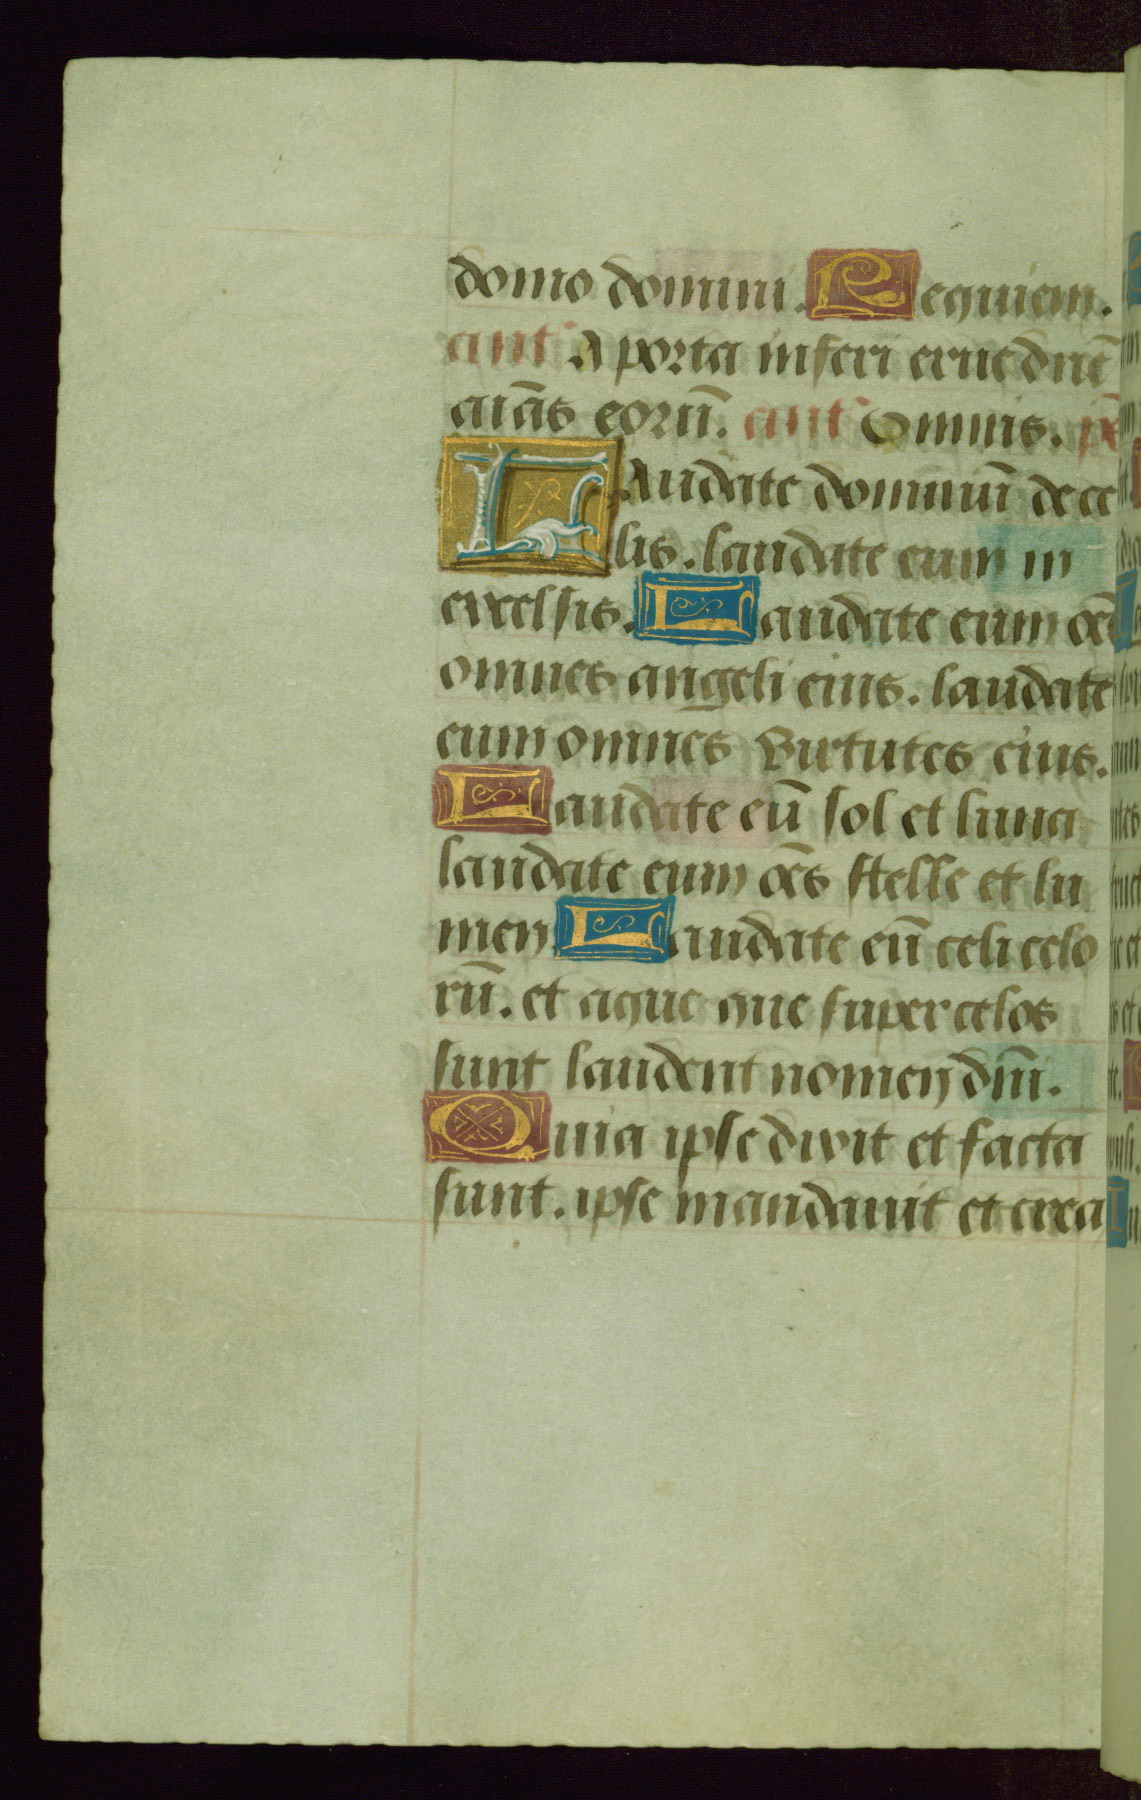 domo domini. Requiem.
ant͂ A porta inferi erue dn̄e
aīas eorū. ant͂ Omnis. ps̄
LAudate dominū de ce
lis. laudate eum in
excelsis. Laudate eum
omnes angeli eius. laudate
eum omnes virtutes eius.
Laudate eū sol et luna
laudate eum oēs stelle et lu
men Laudate eū celi celo
rū. et aque que super celos
sunt laudent nomen dn̄i.
Quia ipse dixit et facta
sunt. ipse mandauit et crea